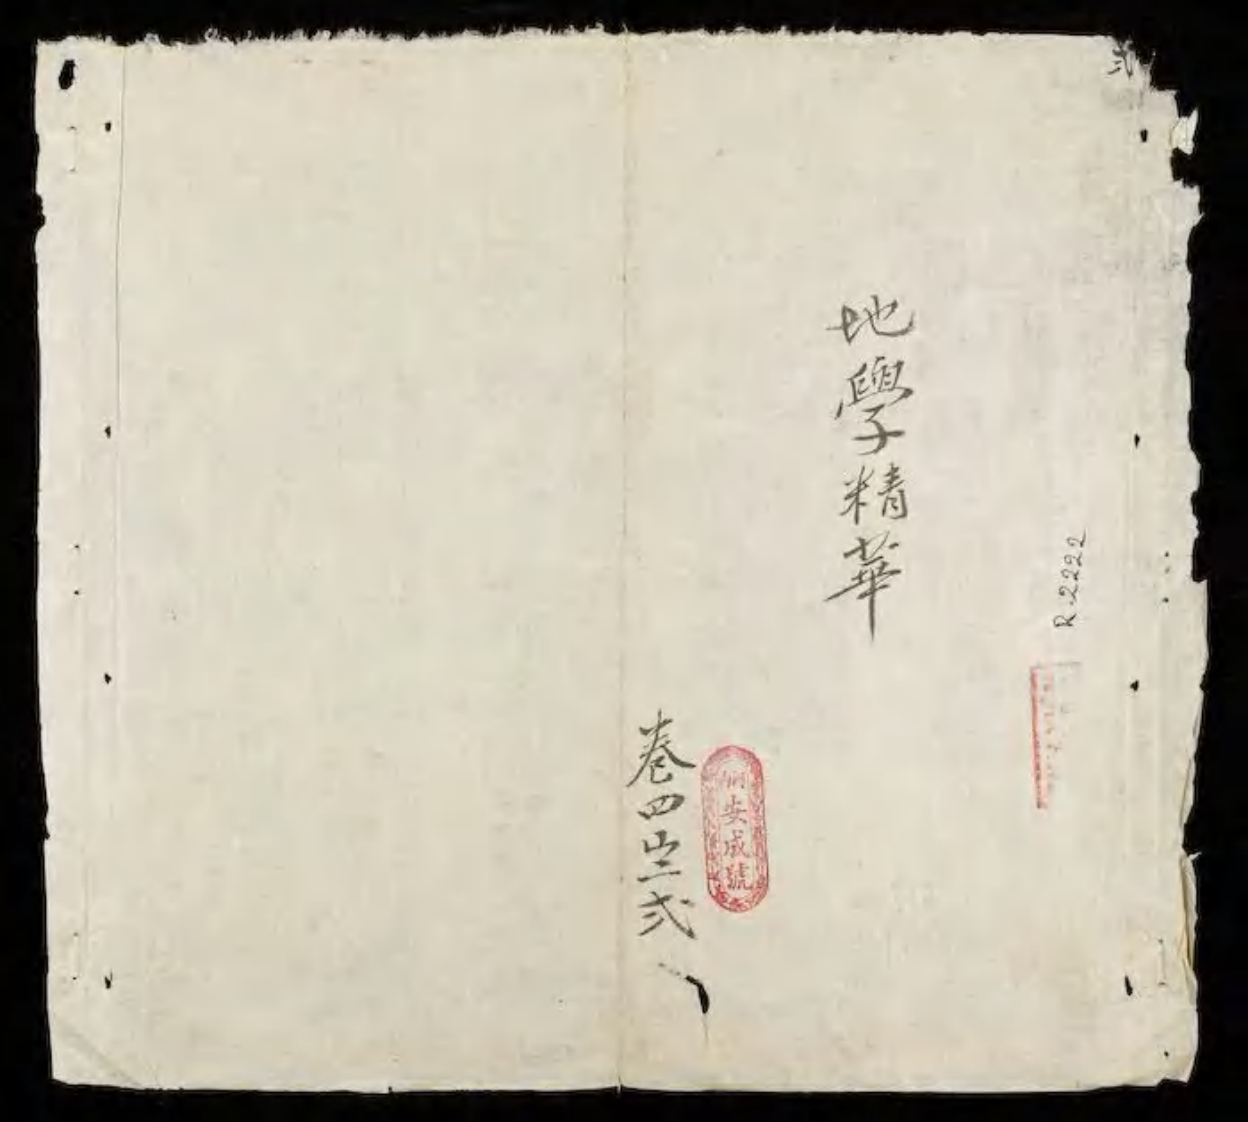 弍
R.2222
地學精華
卷四之弍
安成號